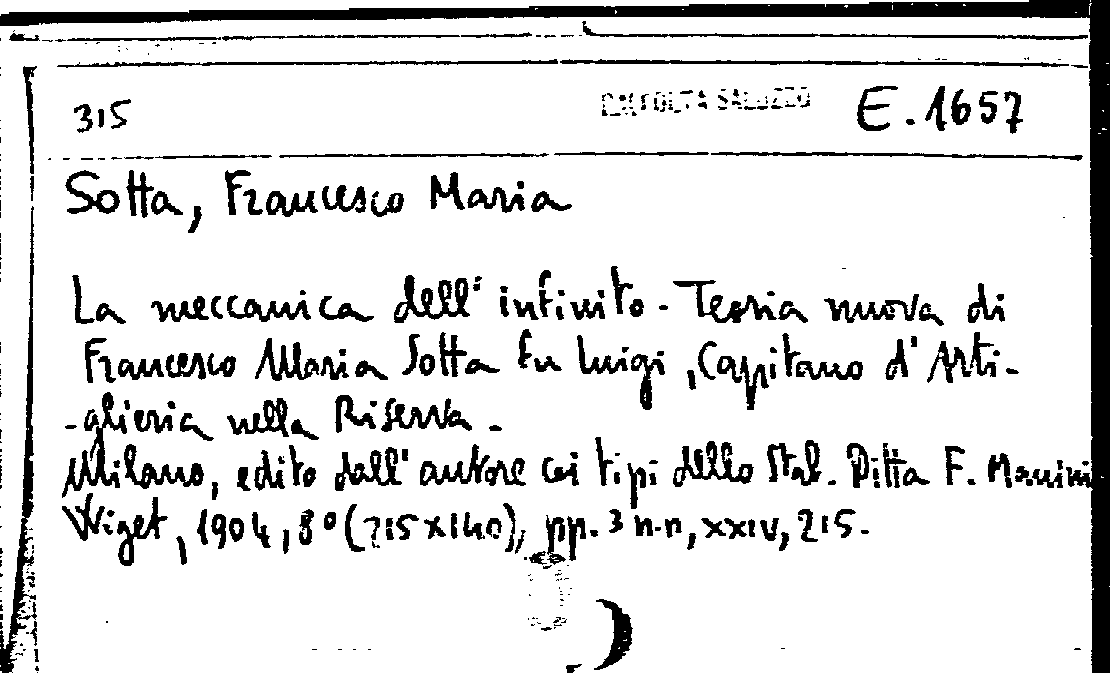 315 RACCOLTA SALUZZO E.1657
Sotta, Francesco Maria
La meccanica dell'infinito - Teoria nuova di
Francesco Maria Sotta fu Luigi, Capitano d'Arti-
-glieria nella Riserva -
Milano, edito dall'autore coi tipi dello Stab. Ditta F. Manini
Wiget, 1904, 8° (215x140), pp. 3 n.n, XXIV, 215.